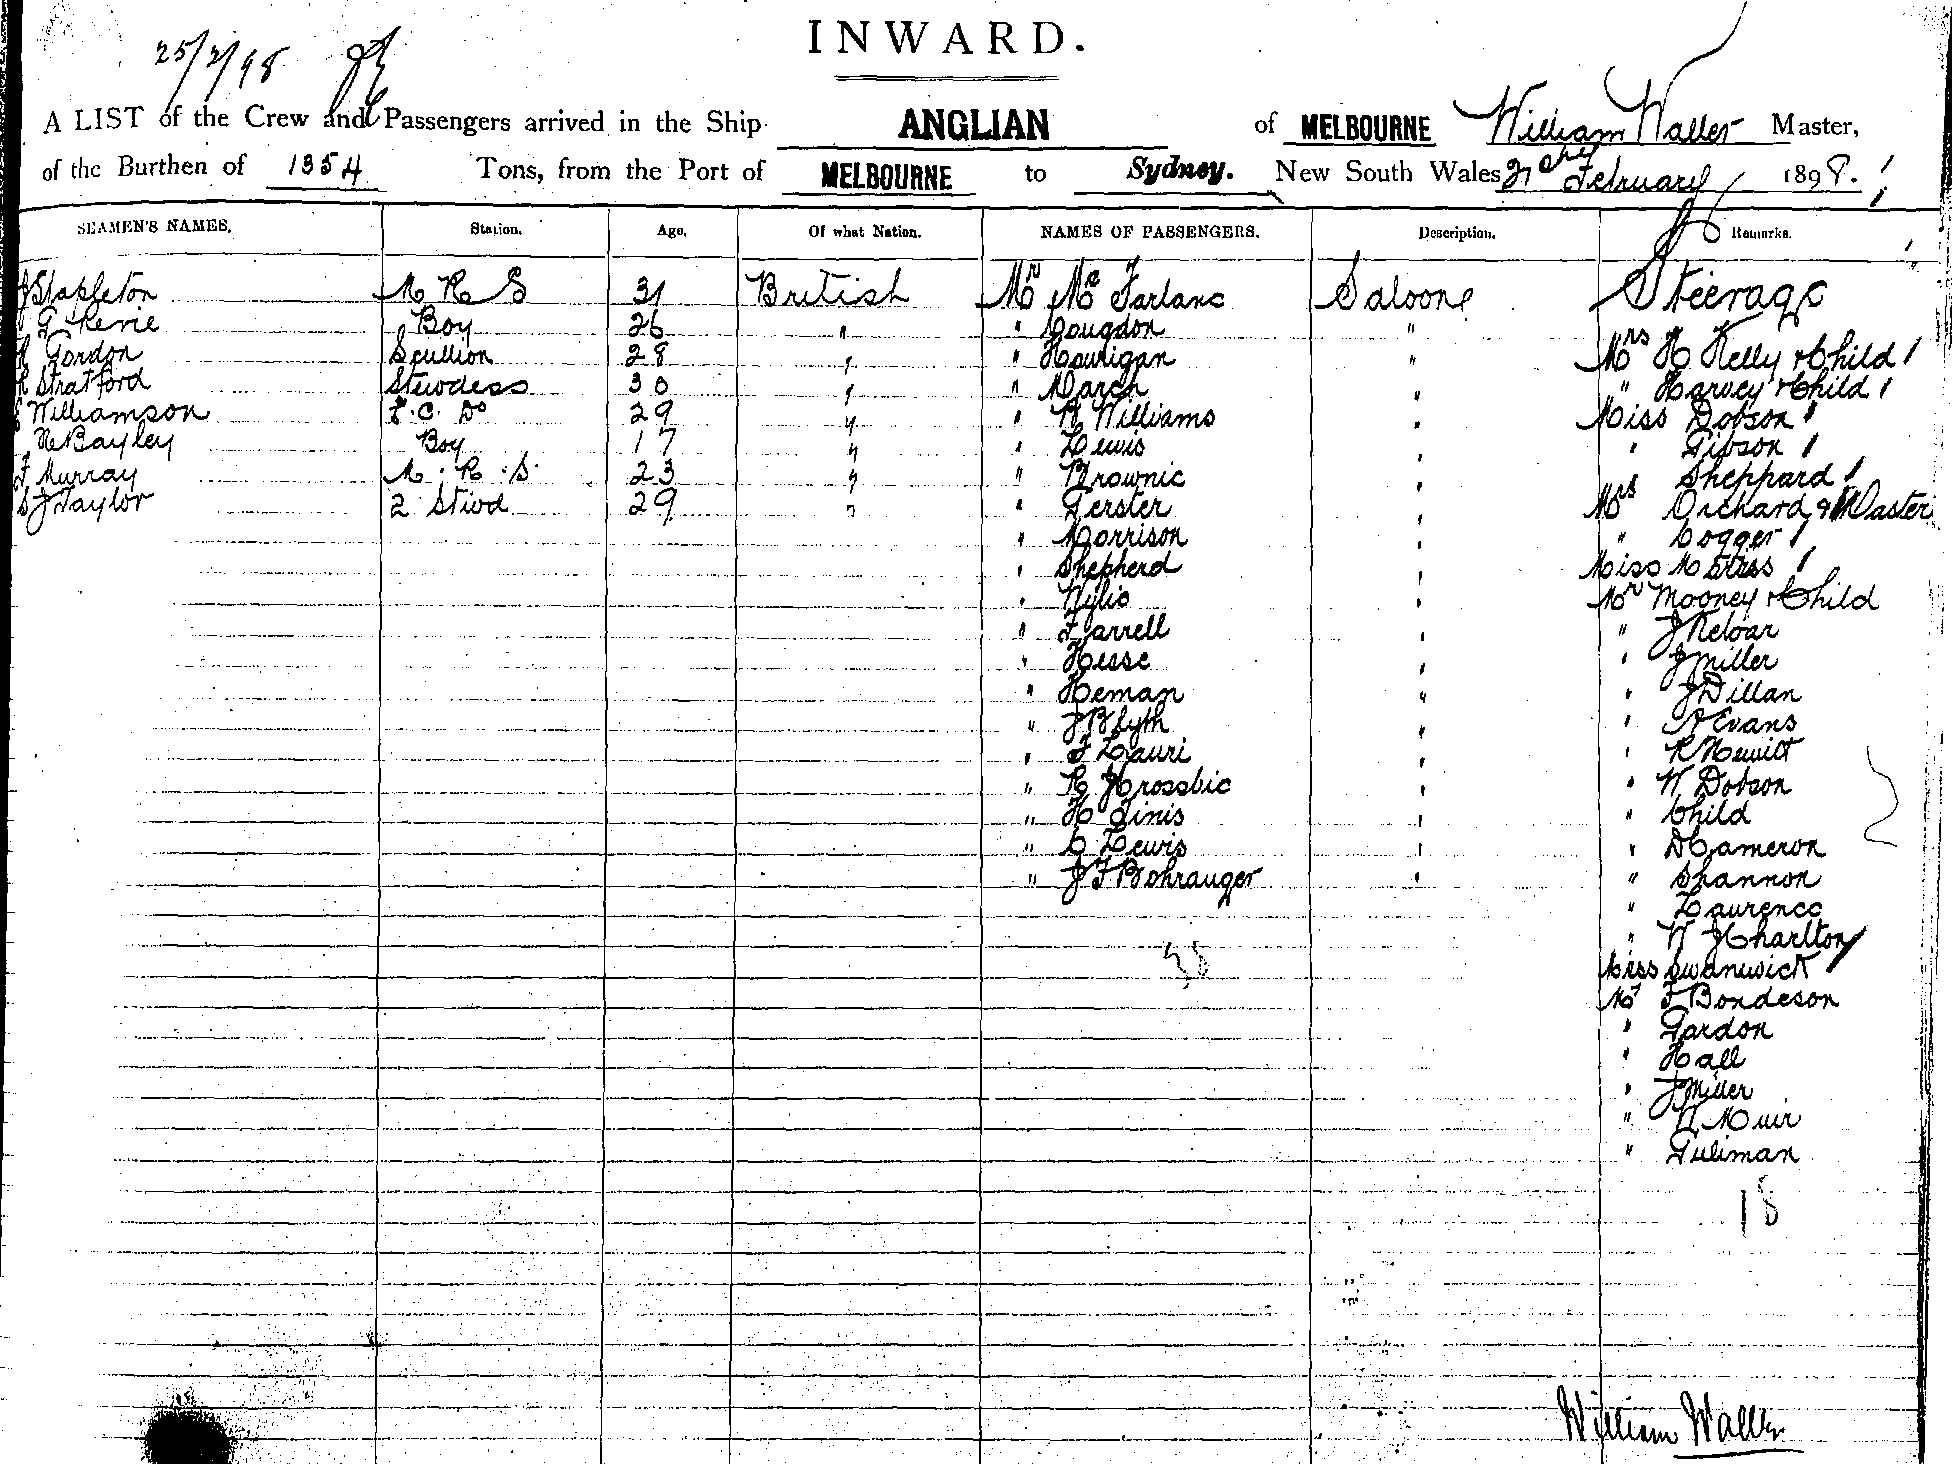 INWARD.
25/2/98
A LIST of the Crew and Passengers arrived in the Ship ANGLIAN of MELBOURNE William Waller Master,
of the Burthen of 1354 Tons, from the Port of MELBOURNE to Sydney. New South Wales February 1898.
SEAMEN'S NAMES. Station. Age. Of what Nation. NAMES OF PASSENGERS. Description. Remarks.
J Stapleton M R S 31 British Mr McFarlane Saloon Steerage
Boy 26 " " Congdon "
Gordon Scullion 28 " " Hourigan " Mrs H Kelly & Child
Stratford Stewdess 30 " " March " " Harvey & Child
Williamson F.C. Do 29 " " W Williams " Miss Dobson
McBayley Boy 17 " " Lewis " " Gibson
F Murray M. R. S. 23 " " Brownie " " Sheppard
S J Taylor 2 Stwd 29 " " Gerster " Mrs Orchard & Master
" Morrison " " Cogger
" Shepherd " Miss
" Wylie " Mr Mooney & Child
" Farrell " " J Reloar
" Hesse " " J Miller
" Heman " " J Dillan
" J Blyth " " A Evans
" F Lauri " " R Hewitt
" " " W Dobson
" H Ginis " " Child
" C Lewis " " D Cameron
" J F Bohrauger " " Shannon
" Laurence
" W J Charlton
38
Miss Swanwick
Mr F Bondeson
" Gardon
" Hall
" J Miller
" W Muir
" Tuliman
18
William Waller